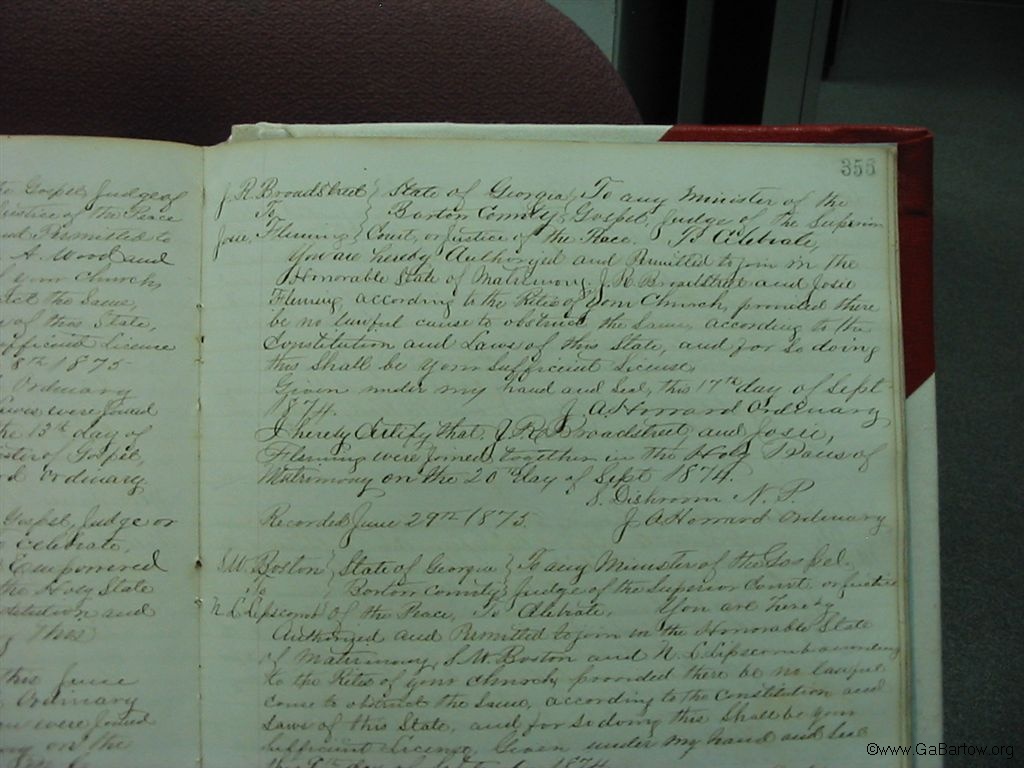 to Gospel, Judge of
Justice of the Peace
and Permitted to
A. Wood and
of your Church,
the same,
of this State,
sufficient License
8th 1875
Ordinary
were joined
the 13th day of
of Gospel,
Ordinary.
Gospel, Judge or
celebrate,
Empowered
the Holy State
and
this
this June
Ordinary
were joined
on the
355
J. R. Broadstreet } State of Georgia } To any Minister of the
To } Bartow County } Gospel, Judge of the Superior
Josie, Fleming } Court, or Justice of the Peace. To Celebrate,
You are hereby Authorized and Permitted to join in the
Honorable State of Matrimony. J. R. Broadstreet and Josie
Fleming, according to the Rites of Your Church, provided there
be no lawful cause to obstruct the Same, according to the
Constitution and Laws of this State, and for so doing
this Shall be Your Sufficient License
Given under my hand and Seal, this 17th day of Sept
1874. J. A Howard Ordinary
I hereby Certify that, J. R. Broadstreet, and Josie,
Fleming were joined, together in the Holy Bans of
Matrimony on the 20th day of Sept 1874.
S. Dishroom N. P.
Recorded June 29th 1875. J A Howard Ordinary
S. W. Boston } State of Georgia } To any Minister of the Gospel.
To } Bartow County } Judge of the Superior Court or Justice
N. L. Lipscomb of the Peace, To Celebrate. You are Hereby
Authorized and Permitted to join in the Honorable State
of Matrimony, S. W. Boston and N. L. Lipscomb according
to the Rites of your Church, provided there be no lawful
cause to obstruct the Same, according to the Constitution and
Laws of this State, and for so doing this Shall be your
Sufficient License, Given under my hand and Seal
this day of 1874
©www.GaBartow.org